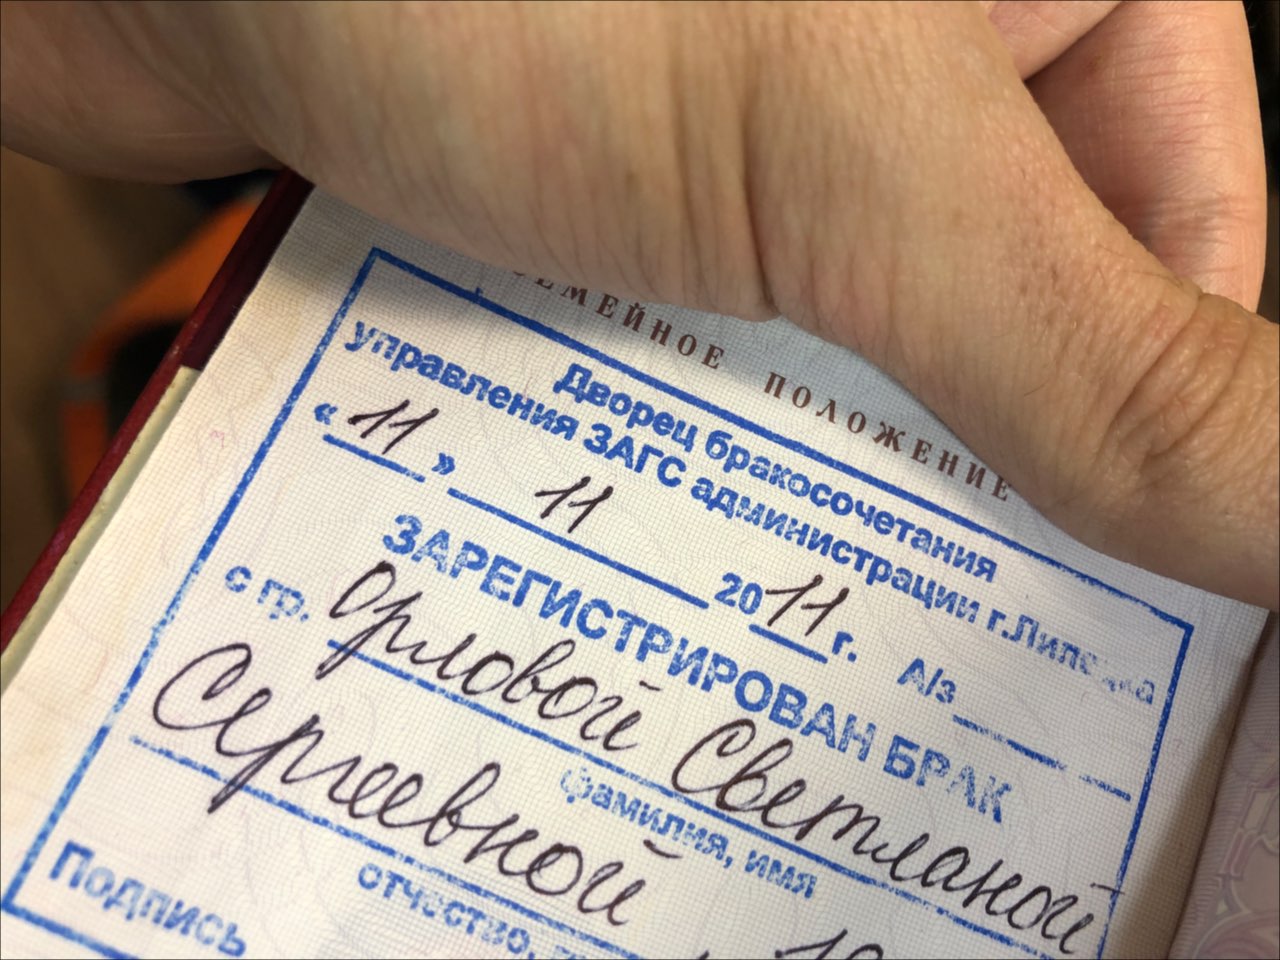 СЕМЕЙНОЕ ПОЛОЖЕНИЕ
Дворец бракосочетания
управления ЗАГС администрации г.
« 11 » 11 2011 г. А/з
ЗАРЕГИСТРИРОВАН БРАК
с гр. Орловой Светланой
фамилия, имя
Сергеевной
отчество,
Подпись